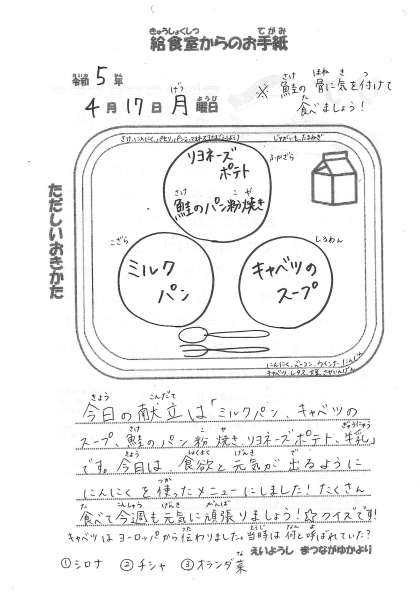 給食室からのお手紙
令和 5 年
4 月 17 日 月 曜日
※ 鮭の骨に気を付けて
食べましょう!
ただしいおきかた
リヨネーズ
ポテト
鮭のパン粉焼き
ふかざら
こざら
ミルク
パン
しるわん
キャベツの
スープ
今日の献立は「ミルクパン、キャベツの
スープ、鮭のパン粉焼き、リヨネーズポテト、牛乳」
です。今日は、食欲と元気が出るように
にんにくを使ったメニューにしました!たくさん
食べて今週も元気に頑張りましょう!☆クイズです!
キャベツはヨーロッパから伝わりました。当時は何と呼ばれていた?
えいようし まつながゆかより
①シロナ ②チシャ ③オランダ菜